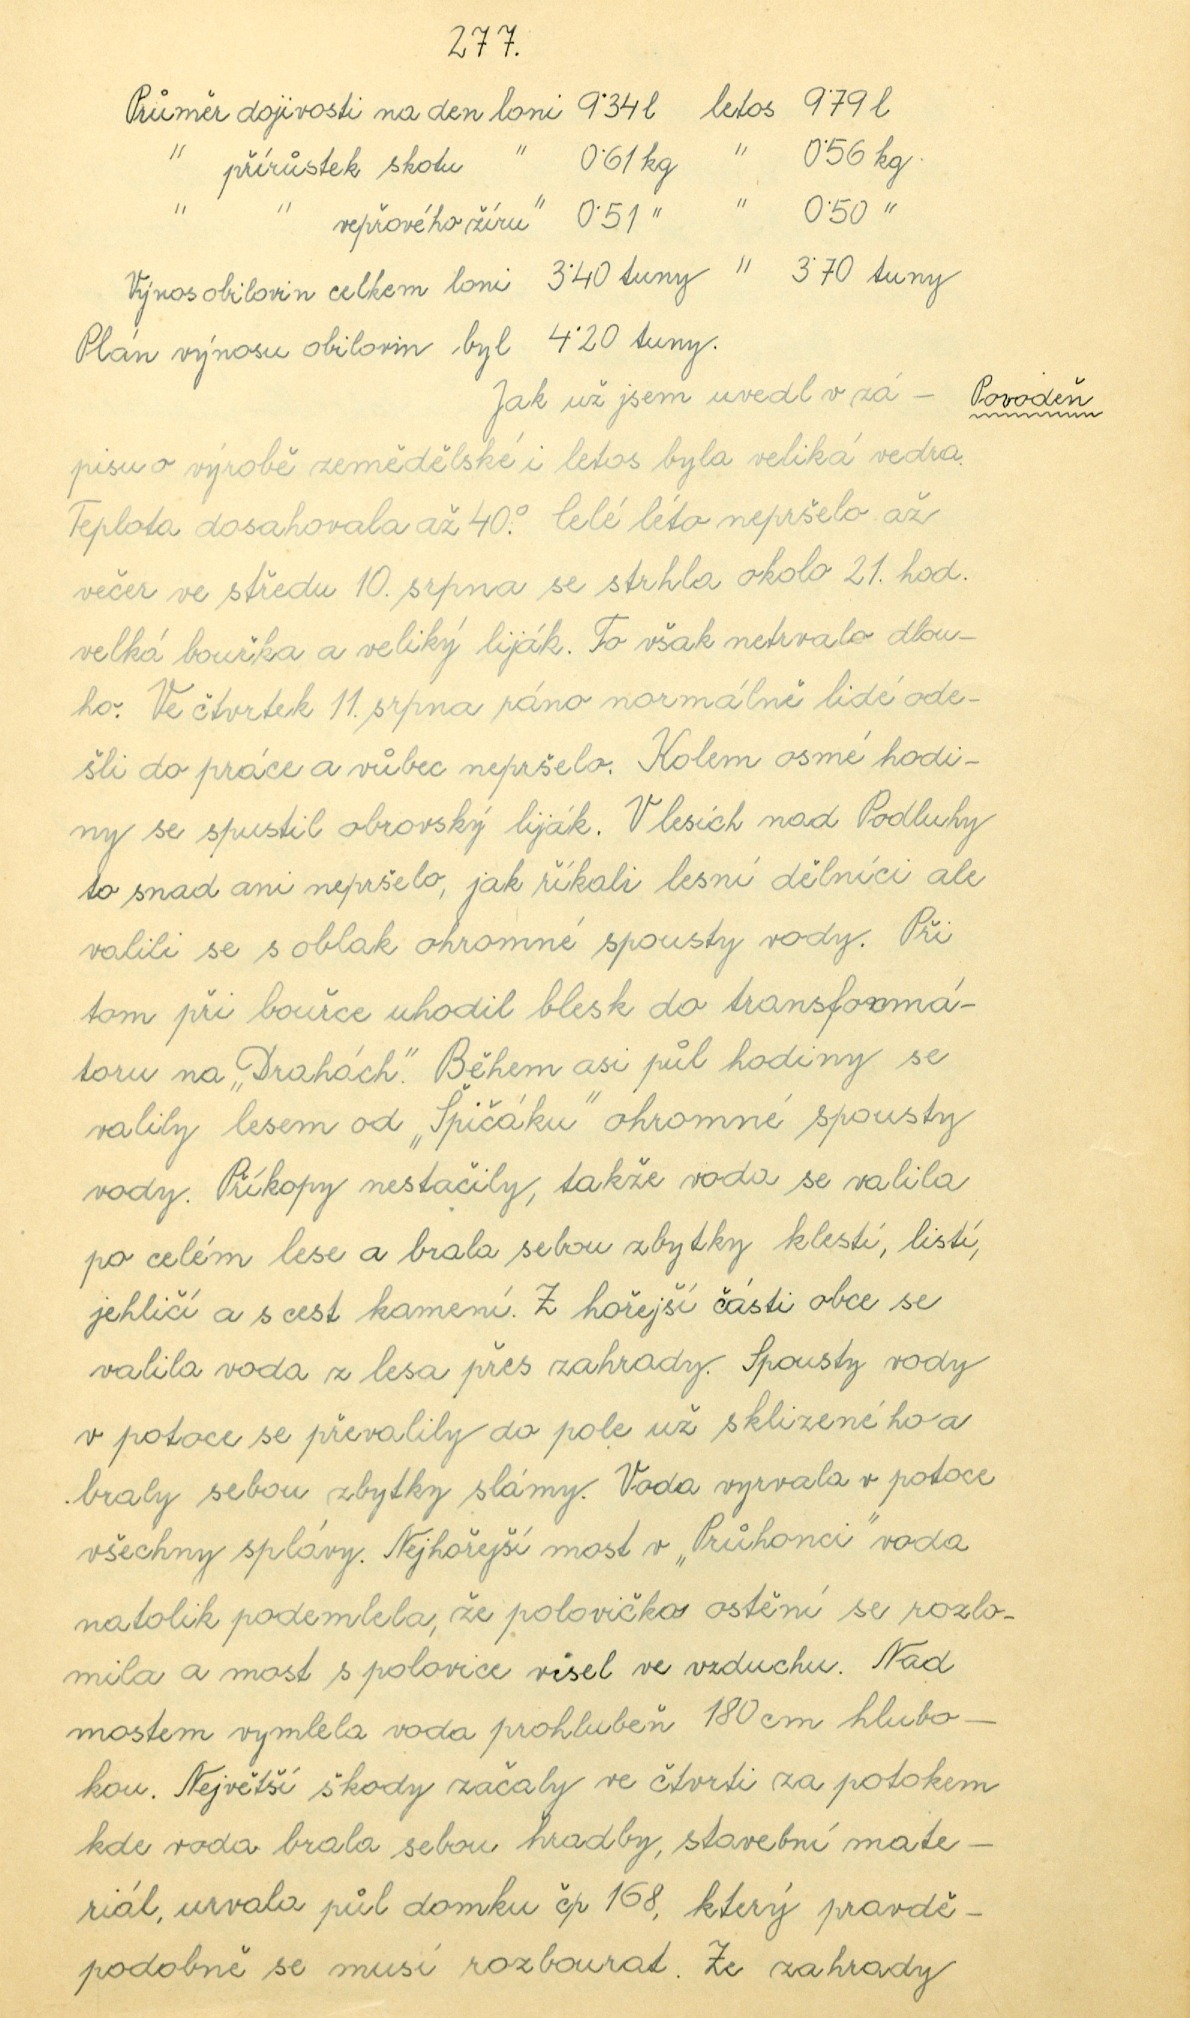 277.
Průměr dojivosti na den loni 9˙34 l letos 9˙79 l
" přírůstek skotu " 0˙61 kg " 0˙56 kg.
" " vepřového žíru " 0˙51 " " 0˙50 "
Výnos obilovin celkem loni 3˙40 tuny " 3˙70 tuny
Plán výnosu obilovin byl 4˙20 tuny.
Jak už jsem uvedl v zá- Povodeň
pisu o výrobě zemědělské i letos byla veliká vedra.
Teplota dosahovala až 40°. Celé léto nepršelo až
večer ve středu 10. srpna se strhla okolo 21. hod.
velká bouřka a veliký liják. To však netrvalo dlou-
ho. Ve čtvrtek 11. srpna ráno normálně lidé ode-
šli do práce a vůbec nepršelo. Kolem osmé hodi-
ny se spustil obrovský liják. V lesích nad Podluhy
to snad ani nepršelo, jak říkali lesní dělníci ale
valili se s oblak ohromné spousty vody. Při
tom při bouřce uhodil blesk do transformá-
toru na „Drahách". Během asi půl hodiny se
valily lesem od „Špičáku" ohromné spousty
vody. Příkopy nestačily, takže voda se valila
po celém lese a brala sebou zbytky klestí, listí,
jehličí a s cest kamení. Z hořejší části obce se
valila voda z lesa přes zahrady. Spousty vody
v potoce se převalily do pole už sklizeného a
braly sebou zbytky slámy. Voda vyrvala v potoce
všechny splávy. Nejhořejší most v „Průhonci" voda
natolik podemlela, že polovička ostění se rozlo-
mila a most s polovice visel ve vzduchu. Nad
mostem vymlela voda prohlubeň 180 cm hlubo-
kou. Největší škody začaly ve čtvrti za potokem
kde voda brala sebou hradby, stavební mate-
riál, urvala půl domku čp 168, který pravdě-
podobně se musí rozbourat. Ze zahrady